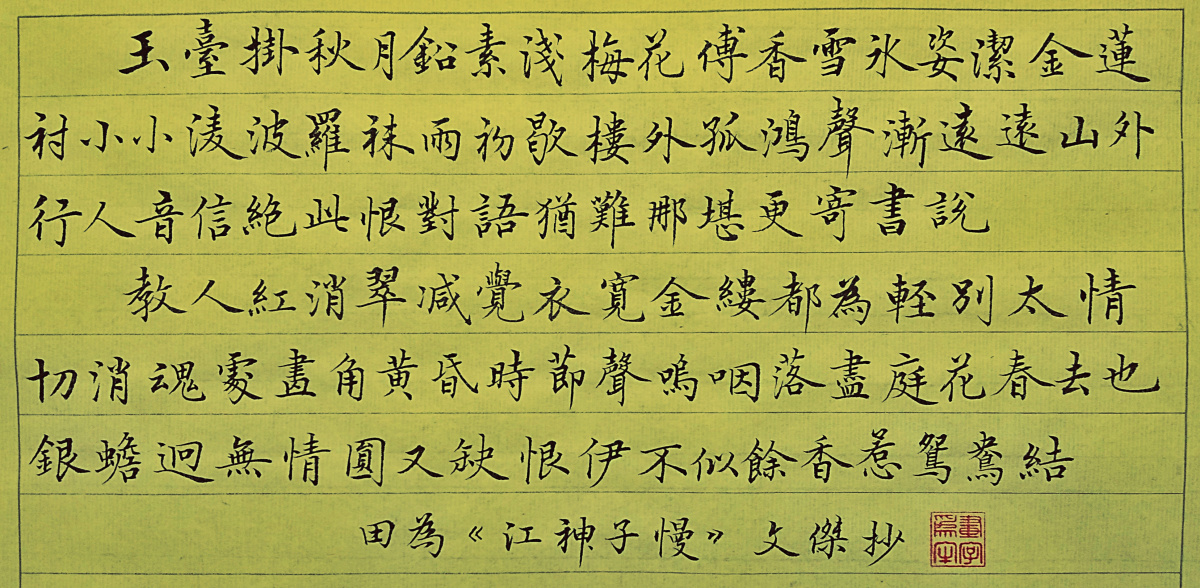 玉臺掛秋月鉛素淺梅花傅香雪冰姿潔金蓮
襯小小淩波羅襪雨初歇樓外孤鴻聲漸遠遠山外
行人音信絕此恨對語猶難那堪更寄書說
教人紅消翠减覺衣寬金縷都為輕別太情
切消魂處畫角黃昏時節聲嗚咽落盡庭花春去也
銀蟾迥無情圓又缺恨伊不似餘香惹鴛鴦結
田為《江神子慢》文傑抄